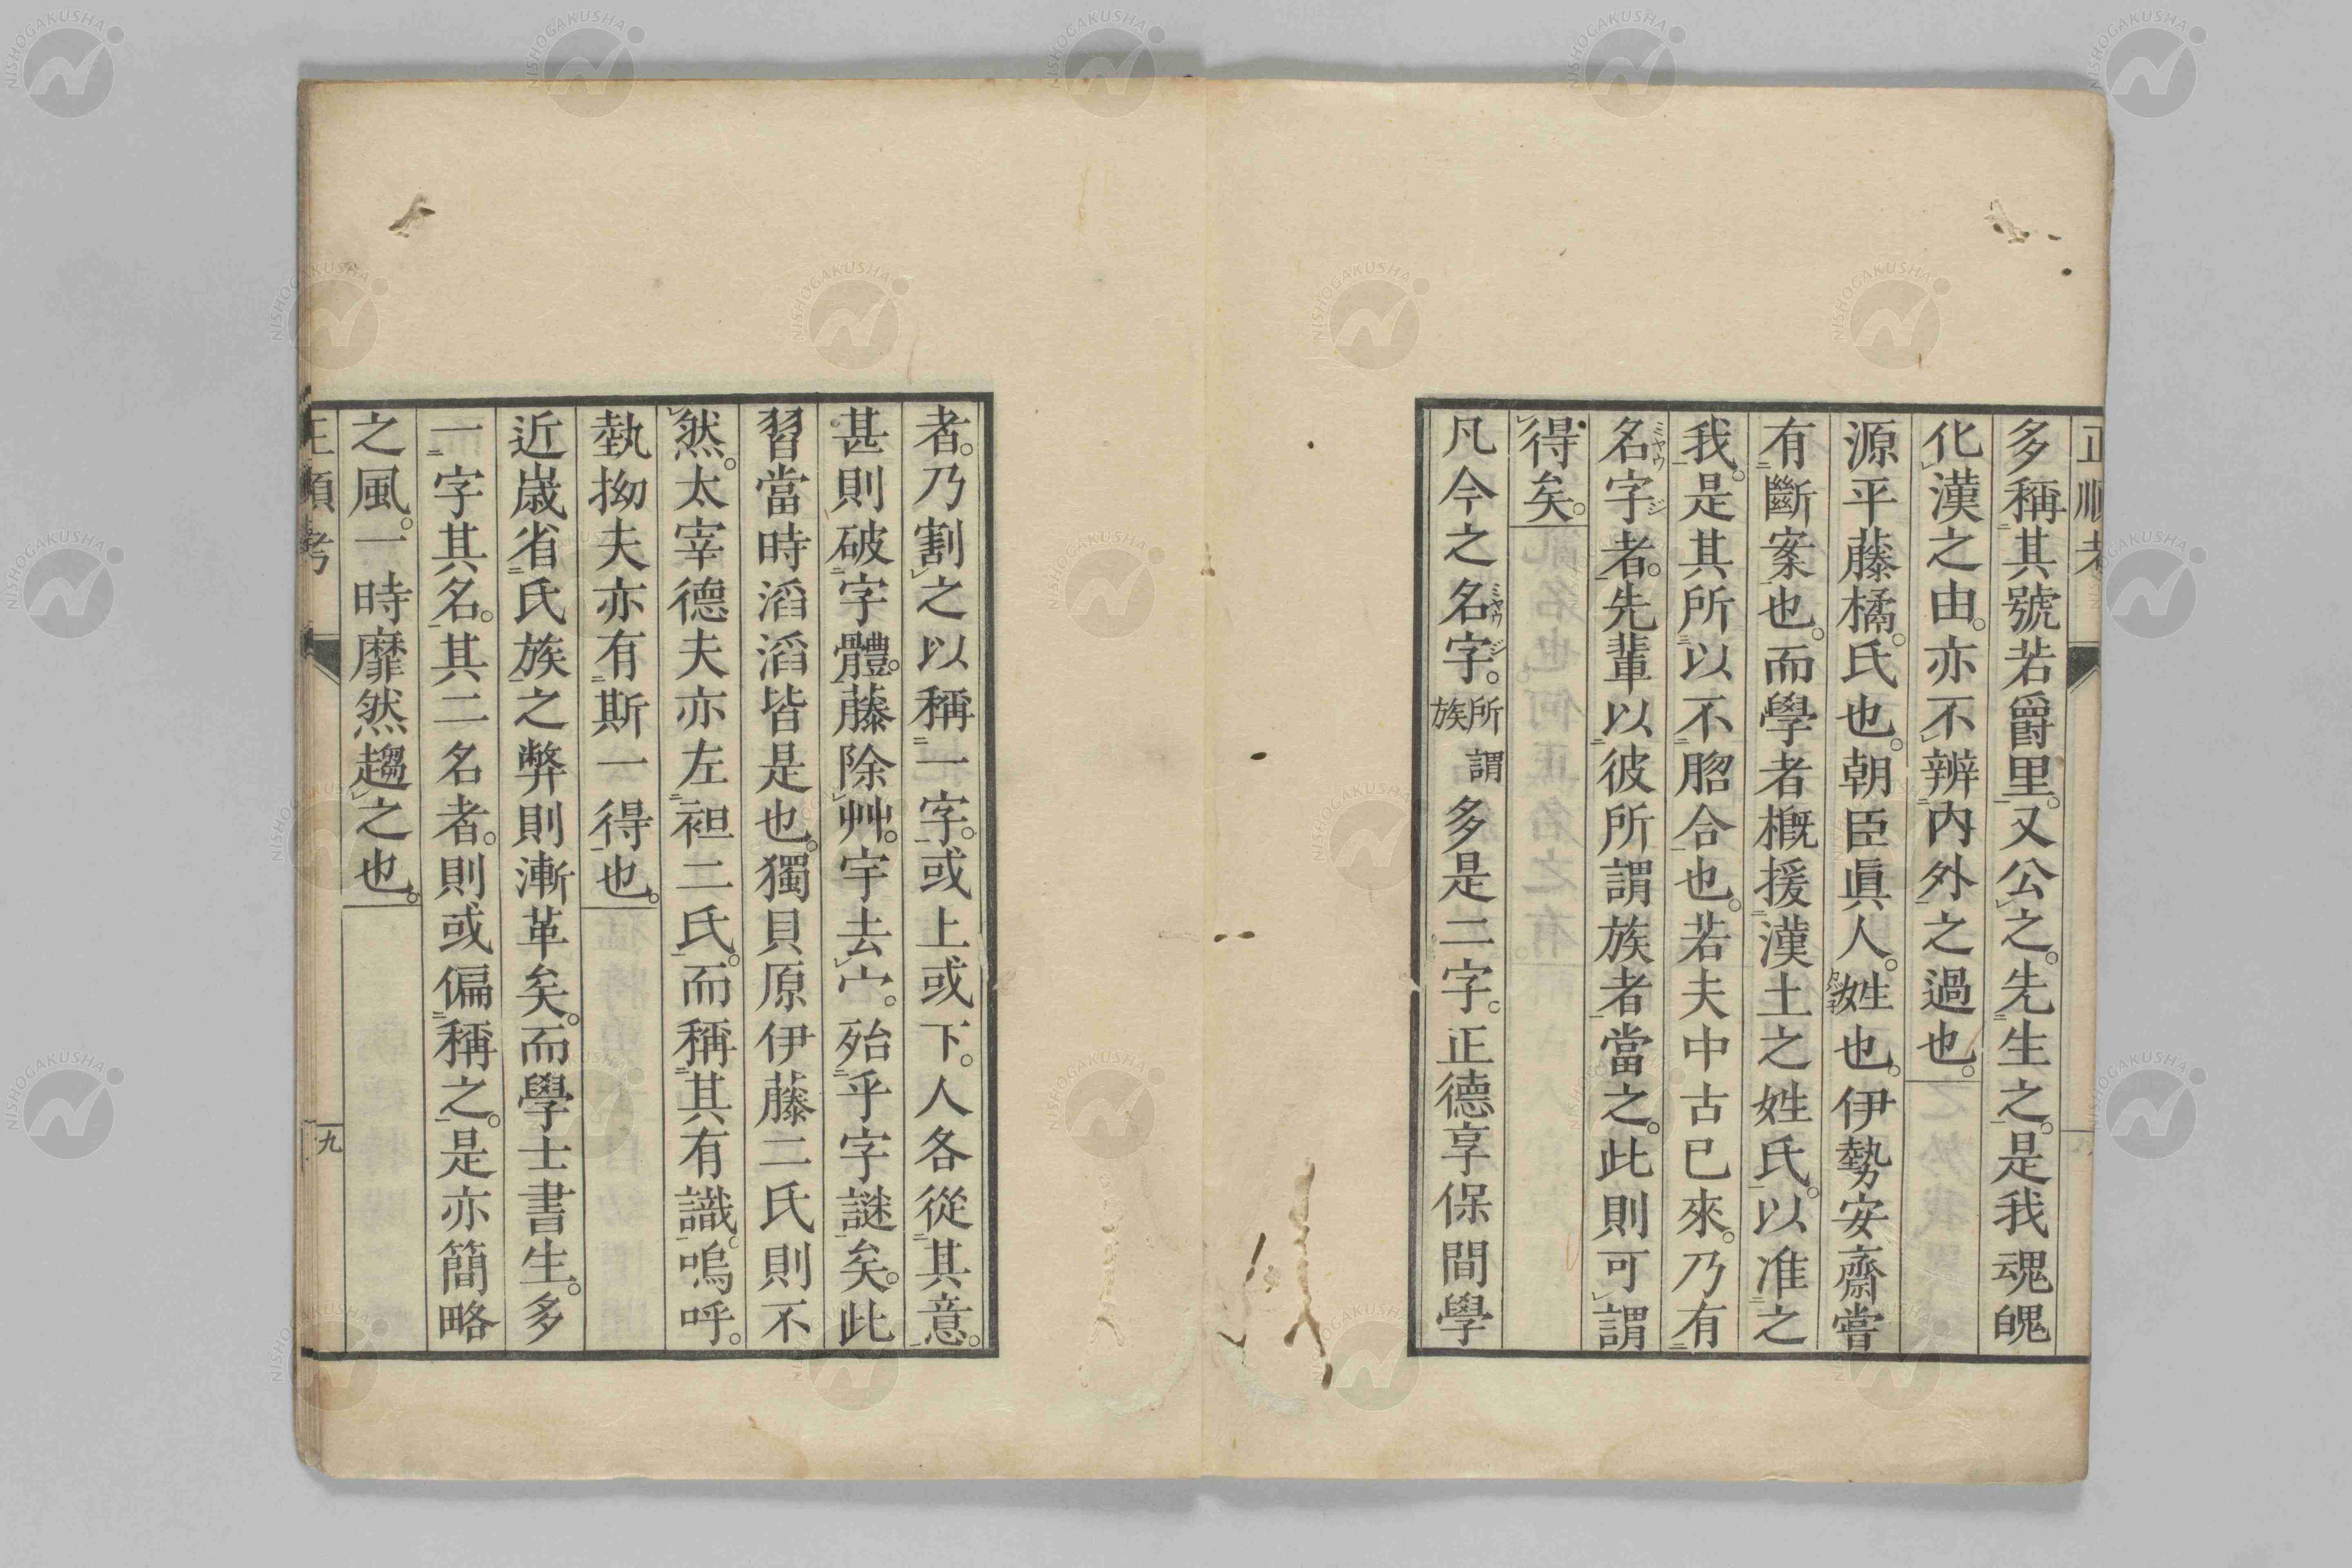 多稱其號若爵里。又公之。先生之。是我魂魄
化漢之由。亦不辨內外之過也。
源平藤橘。氏也。朝臣眞人。姓也。伊勢安齋嘗
有斷案也。而學者概援漢土之姓氏。以准之
我。是其所以不脗合也。若夫中古已來。乃有
名字者。先輩以彼所謂族者當之。此則可謂
ミヤウジ
得矣。
凡今之名字。所謂族多是二字。正德享保間學
ミヤウジ
者。乃割之以稱一字。或上或下。人各從其意。
甚則破字體。藤除艸。宇去宀。殆乎字謎矣。此
習當時滔滔皆是也。獨貝原伊藤二氏則不
然。太宰德夫亦左袒二氏。而稱其有識。嗚呼。
執拗夫亦有斯一得也。
近歲省氏族之弊則漸革矣。而學士書生。多
一字其名。其二名者。則或偏稱之。是亦簡略
之風。一時靡然趨之也。
正順考
九
NISHOGAKUSHA